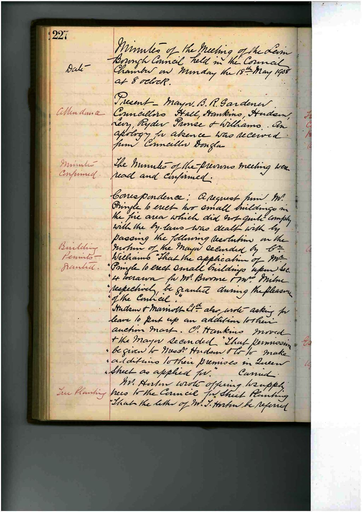 227
Minutes of the Meeting of the Levin
Borough Council held in the Council
Date
Chamber on Monday the 18th May 1908
at 8 oclock.
Present Mayor B. R. Gardener
Attendance
Councillors Hall, Hankins, Hudson,
Levy, Ryder, Prouse & Williams. An
apology for absence was received
from Councillor Douglas
Minutes
Confirmed.
The Minutes of the previous meeting were
read and confirmed.
Correspondence: A request from Mr.
Pringle to erect two small buildings in
the fire area which did not quite comply
with the by-laws was dealt with by
passing the following resolution on the
Building
Permits
Granted.
motion of the Mayor seconded by Cr.
Williams "That the application of Mr.
Pringle to erect small buildings upon
to Messrs and Mr. Milne
respectively, be granted during the pleasure
of the Council"
Andrew & Marriott also wrote asking for
leave to put up an addition to their
auction mart. Cr. Hankins moved
& the Mayor seconded "That permission
be given to Messrs & Co to make
additions to their premises in Queen
Street as applied for." Carried
Tree Planting
Mr. Horton wrote offering to supply
trees to the Council for Street Planting
"That the letter of Mr. F. Horton be referred